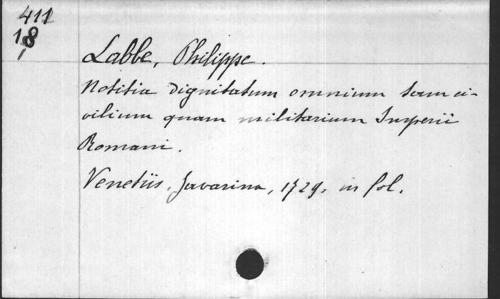 411
18
Labbe, Philippe.
Notitia dignitatum omnium tam ci-
vilium quam militarium Imperii
Romani.
Venetiis, Javarina, 1729, in fol.